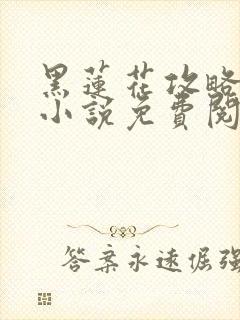 黑蓮花攻略
小說免費閱
答案永遠倔強